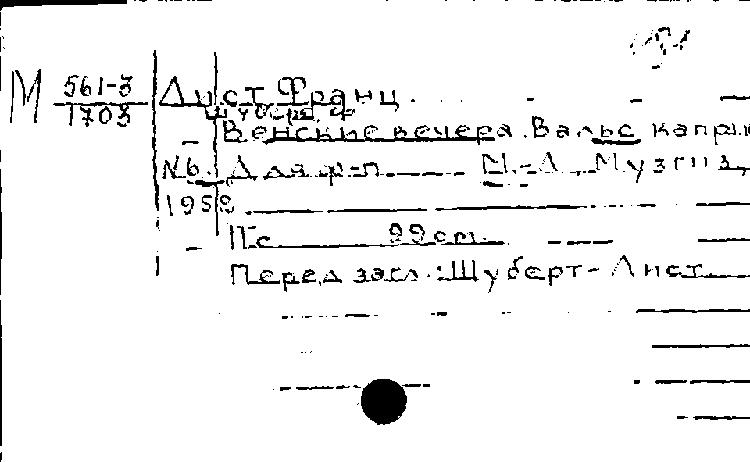 М 561-3 Лист Франц.
1703 Шуберт Ф
Венские вечера. Вальс каприс
№6. Для ф-п. М.-Л., Музгиз,
1952
11 с 29 cm.
Перед загл.: Шуберт-Лист